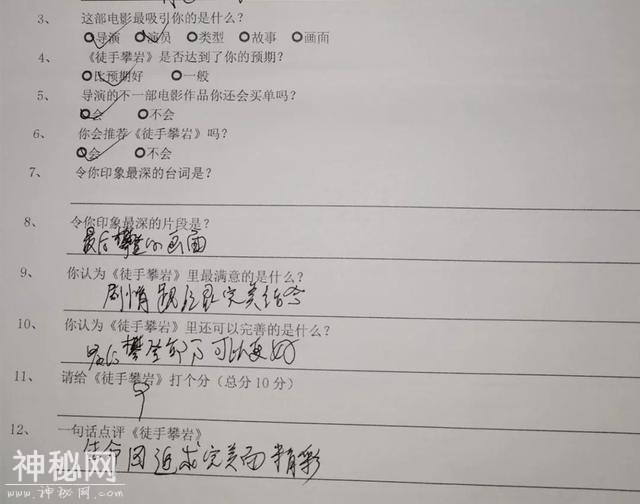 3、 这部电影最吸引你的是什么？
导演 演员 类型 故事 画面
4、 《徒手攀岩》是否达到了你的预期？
比预期好 一般
5、 导演的下一部电影作品你还会买单吗？
会 不会
6、 你会推荐《徒手攀岩》吗？
会 不会
7、 令你印象最深的台词是？
8、 令你印象最深的片段是？
最后攀登的画面
9、 你认为《徒手攀岩》里最满意的是什么？
剧情 完美结合
10、 你认为《徒手攀岩》里还可以完善的是什么？
攀登 可以更好
11、 请给《徒手攀岩》打个分（总分10分）
9
12、 一句话点评《徒手攀岩》
生命因追求完美而精彩
神秘网
www.神秘网.com